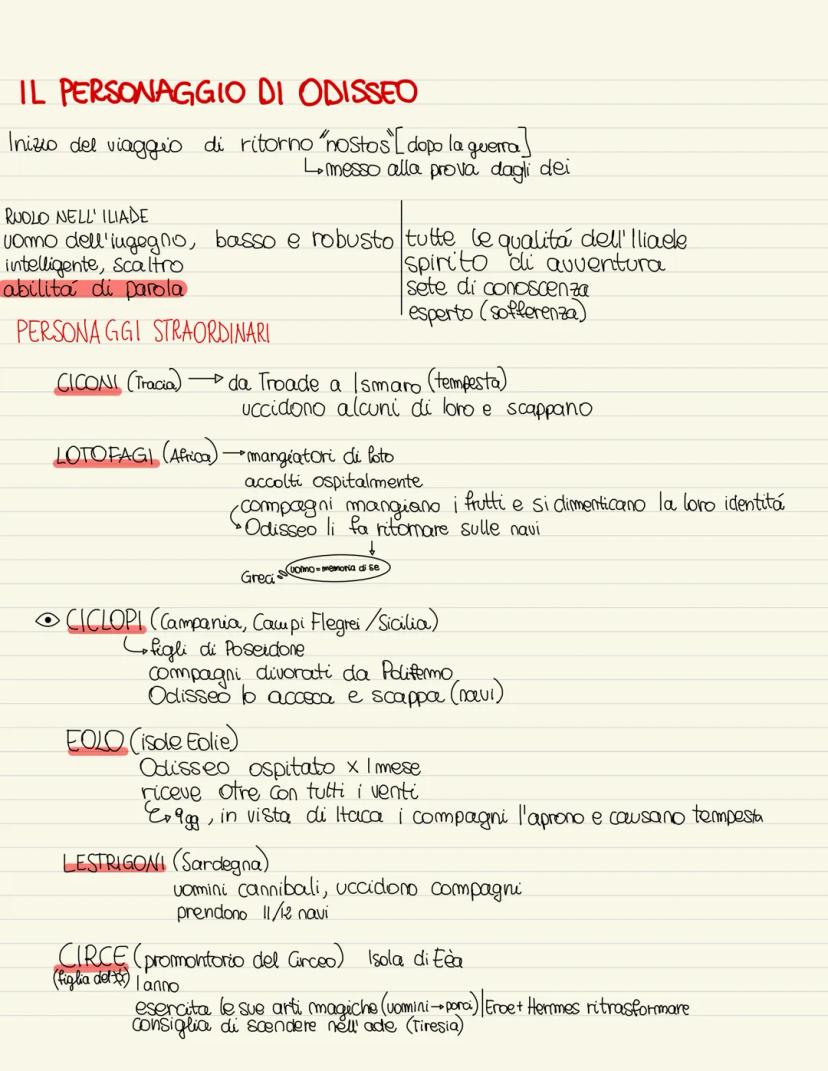 IL PERSONAGGIO DI ODISSEO
Inizio del viaggio di ritorno "nostos" [dopo la guerra]
↳messo alla prova dagli dei
RUOLO NELL'ILIADE
uomo dell'ingegno, basso e robusto
intelligente, scaltro
abilitá di parola
tutte le qualitá dell'Iliade
spirito di avventura
sete di conoscenza
esperto (sofferenza)
PERSONAGGI STRAORDINARI
CICONI (Tracia) → da Troade a Ismaro (tempesta)
uccidono alcuni di loro e scappano
LOTOFAGI (Africa) → mangiatori di loto
accolti ospitalmente
compagni mangiano i frutti e si dimenticano la loro identitá
↳Odisseo li fa ritornare sulle navi
↓
Greci uomo = memoria di se
CICLOPI (Campania, Campi Flegrei / Sicilia)
↳figli di Poseidone
compagni divorati da Polifemo
Odisseo lo acceca e scappa (navi)
EOLO (isole Eolie)
Odisseo ospitato x 1 mese
riceve otre con tutti i venti
↳ 9gg, in vista di Itaca i compagni l'aprono e causano tempesta
LESTRIGONI (Sardegna)
uomini cannibali, uccidono compagni
prendono 11/12 navi
CIRCE (promontorio del Circeo) Isola di Eèa
(figlia del ☼) 1 anno
esercita le sue arti magiche (uomini → porci) | Eroe + Hermes ritrasformare
consiglia di scendere nell'ade (Tiresia)